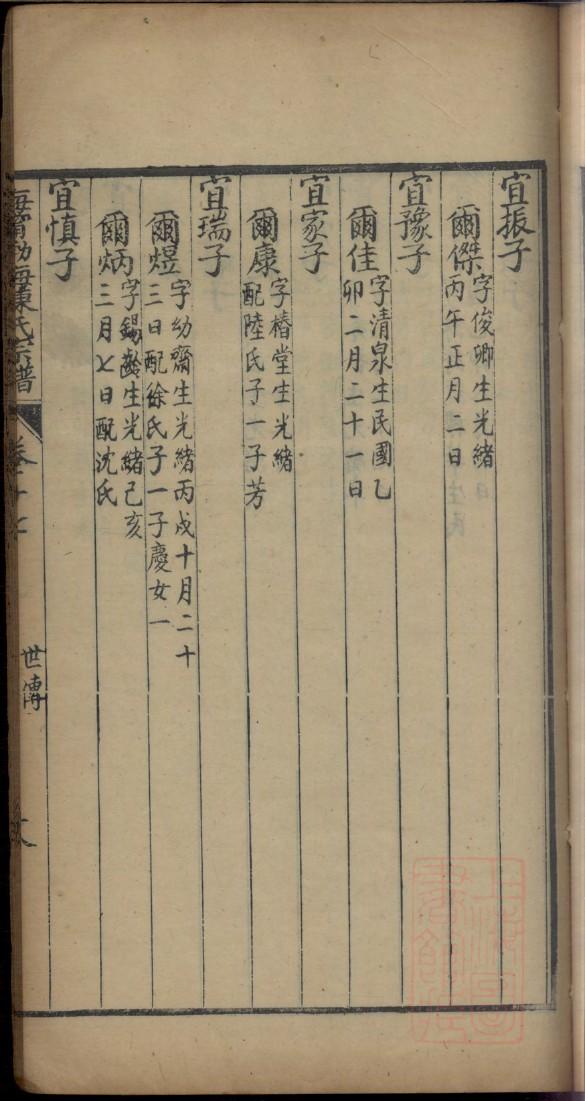 宜振子
爾傑
字俊卿生光緒
丙午正月二日
宜豫子
爾佳
字清泉生民國乙
卯二月二十一日
宜家子
爾康
字椿堂生光緒
配陸氏子一子芳
宜瑞子
爾煜
字幼齋生光緒丙戌十月二十
三日配徐氏子一子慶女一
爾炳
字錫齡生光緒己亥
三月七日配沈氏
宜慎子
氏宗譜
世傳
上海圖
書館藏